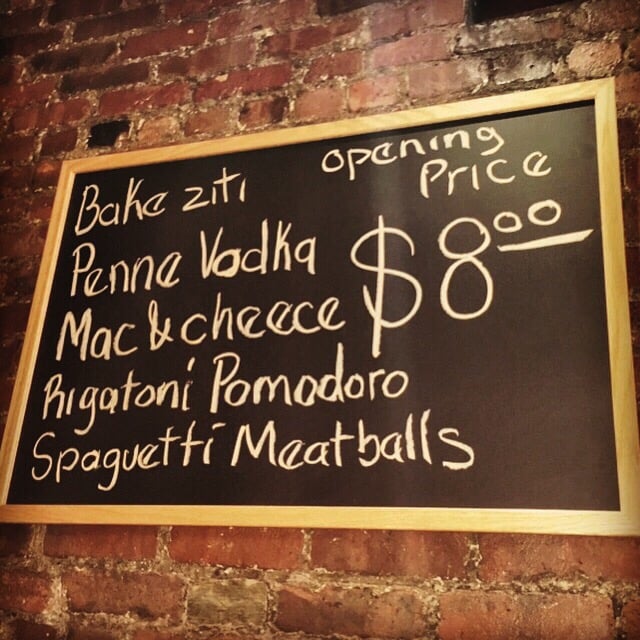 Bake ziti
Penne Vodka
Mac & cheece
Rigatoni Pomodoro
Spaguetti Meatballs
opening
Price
$8.00